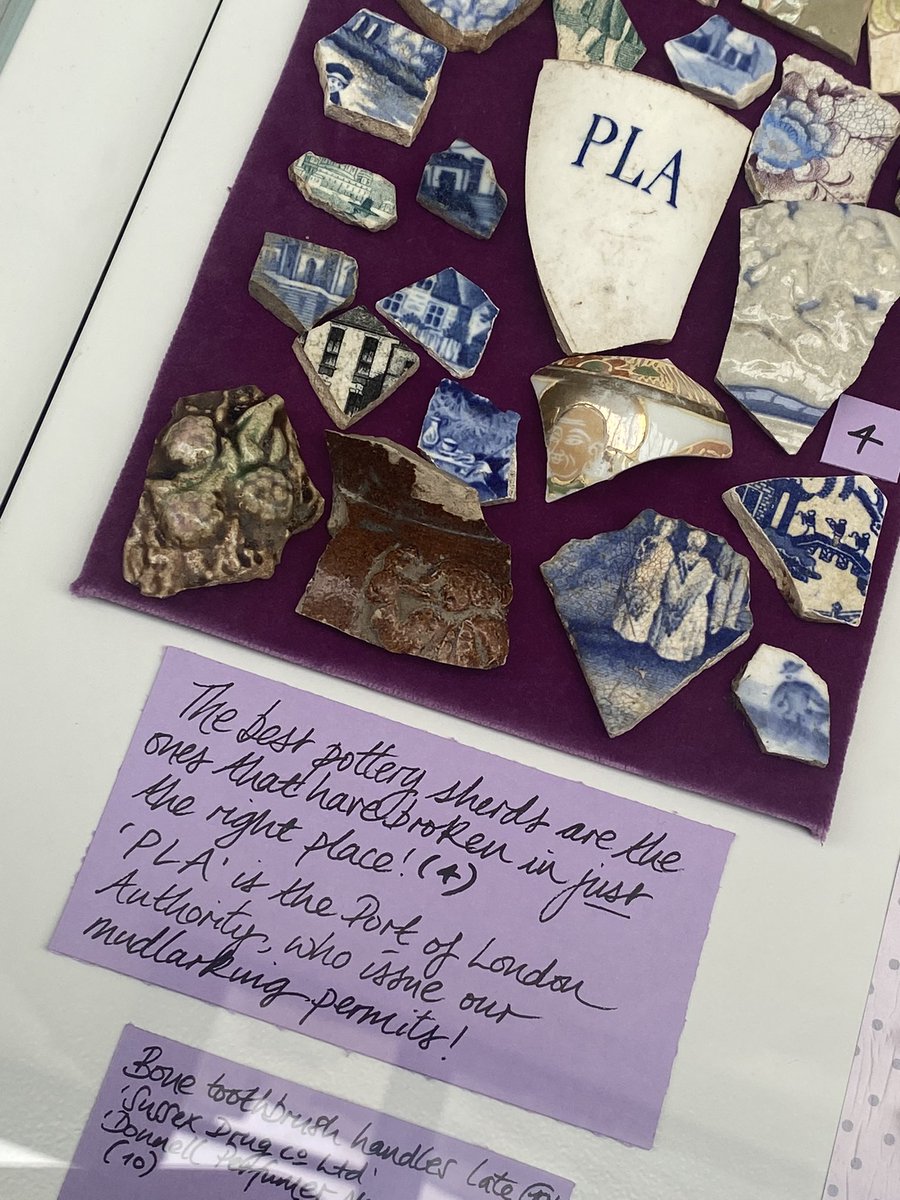 PLA
4
The best pottery sherds are the
ones that have broken in just
the right place! (4)
'PLA' is the Port of London
Authority, who issue our
mudlarking permits!
Bone toothbrush handles late
'Sussex Drug Co Ltd'
'Donnell Perfumer
(10)